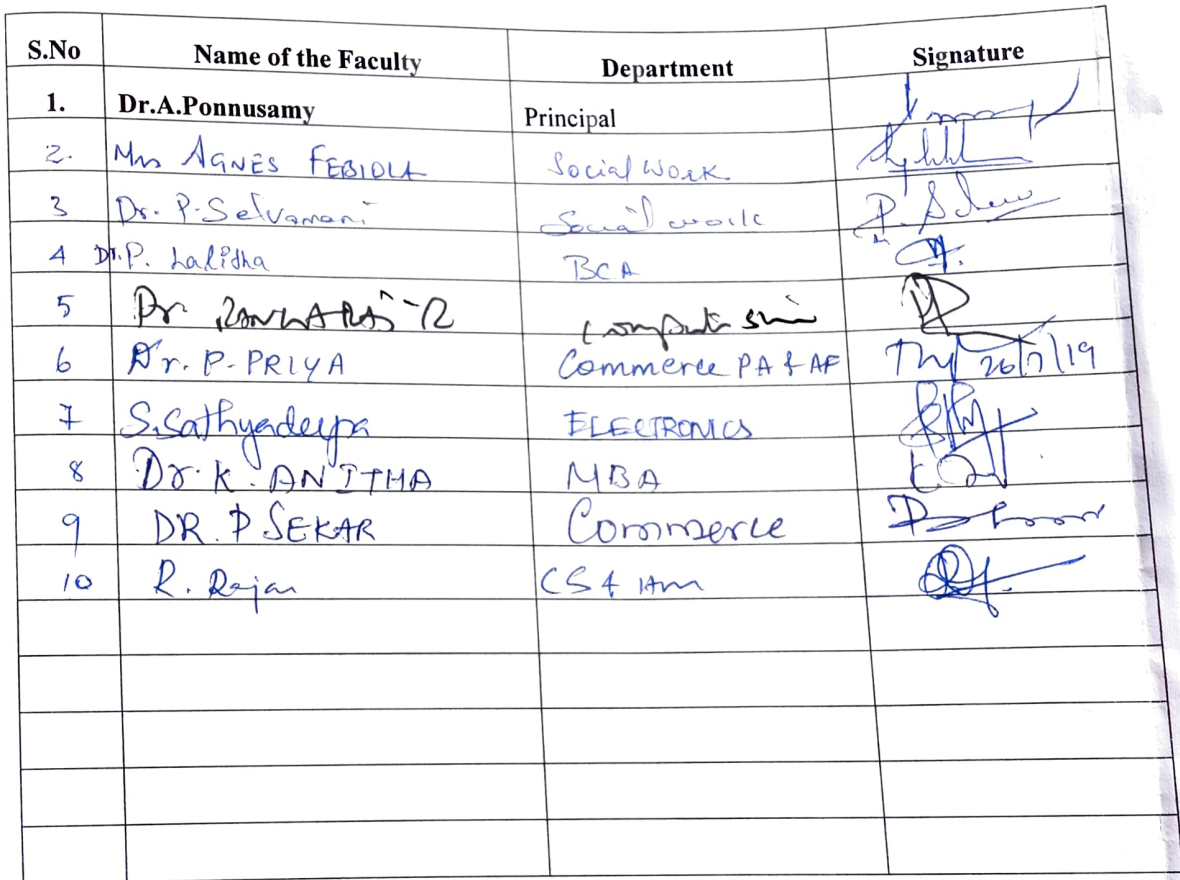 S.No Name of the Faculty Department Signature
1. Dr.A.Ponnusamy Principal
2. Mrs AGNES FEBIOLA Social Work.
3 Dr. P. Selvamani Social work P. Selva
4 Dr.P. Lalitha BCA
5 Dr. RANGARAJ R Computer
6 Dr. P. PRIYA Commerce PA & AF 26/7/19
7 S.Sathyadeepa ELECTRONICS
8 Dr. K. ANITHA MBA
9 DR. P SEKAR Commerce
10 R. Rajan CS & HM